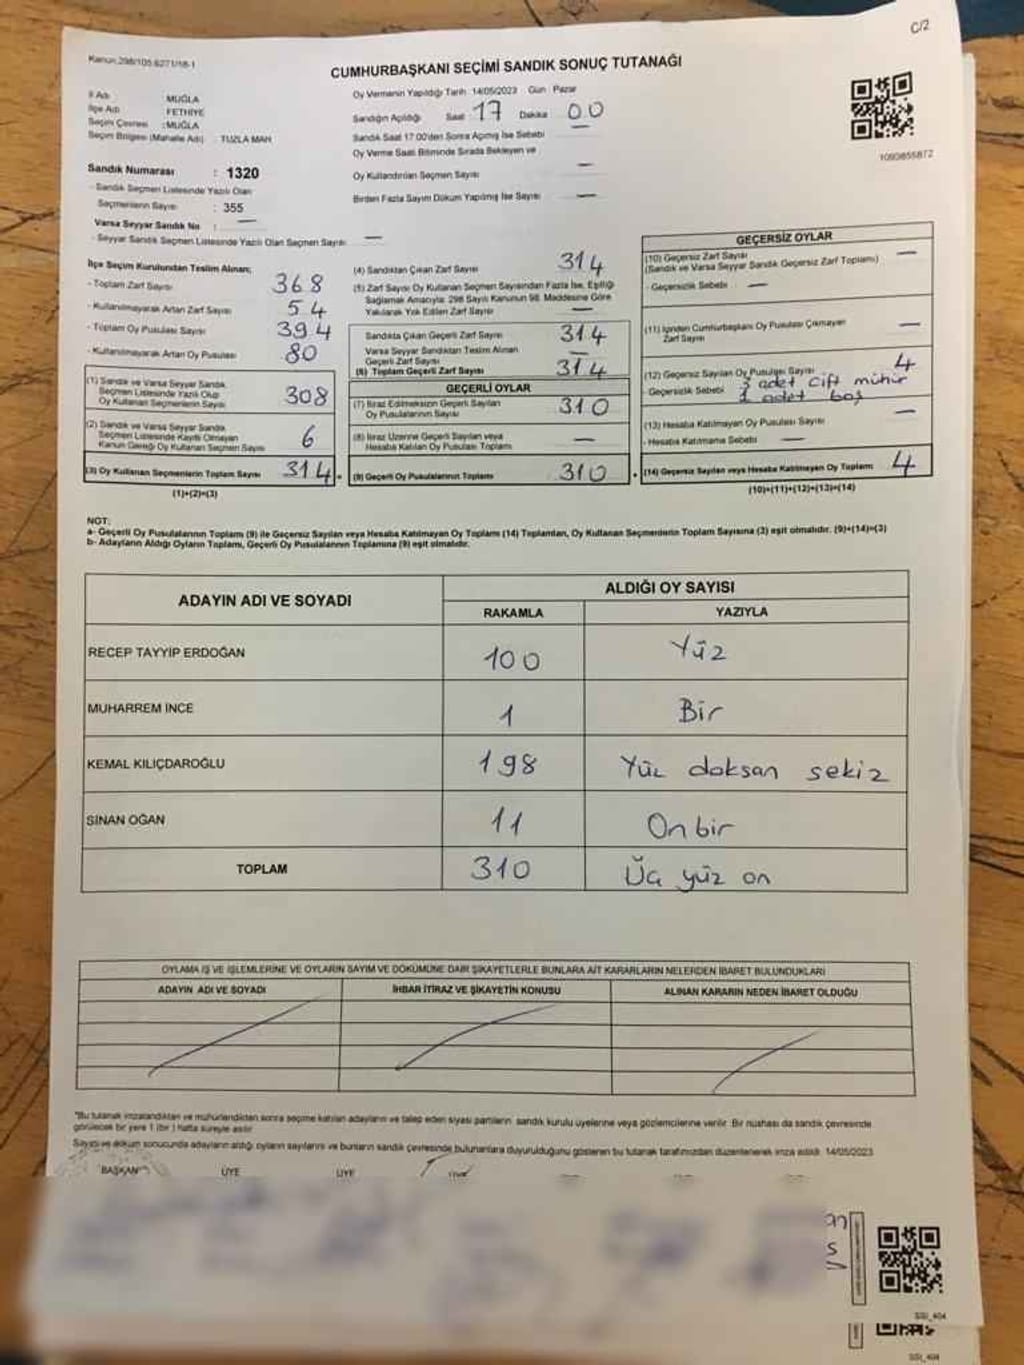 C/2
Kanun,298/105.6271/18-1
CUMHURBAŞKANI SEÇİMİ SANDIK SONUÇ TUTANAĞI
İl Adı : MUĞLA
İlçe Adı : FETHİYE
Seçim Çevresi : MUĞLA
Seçim Bölgesi (Mahalle Adı) : TUZLA MAH
Sandık Numarası : 1320
- Sandık Seçmen Listesinde Yazılı Olan
Seçmenlerin Sayısı : 355
Varsa Seyyar Sandık No : —
- Seyyar Sandık Seçmen Listesinde Yazılı Olan Seçmen Sayısı —
Oy Vermenin Yapıldığı Tarih 14/05/2023 Gün Pazar
Sandığın Açıldığı Saat 17 Dakika 00
Sandık Saat 17.00'den Sonra Açmış İse Sebebi —
Oy Verme Saati Bitiminde Sırada Bekleyen ve
Oy Kullandırılan Seçmen Sayısı —
Birden Fazla Sayım Döküm Yapılmış İse Sayısı —
1093855872
İlçe Seçim Kurulundan Teslim Alınan;
- Toplam Zarf Sayısı 368
- Kullanılmayarak Artan Zarf Sayısı 54
- Toplam Oy Pusulası Sayısı 394
- Kullanılmayarak Artan Oy Pusulası 80
(1) Sandık ve Varsa Seyyar Sandık
Seçmen Listesinde Yazılı Olup
Oy Kullanan Seçmenlerin Sayısı 308
(2) Sandık ve Varsa Seyyar Sandık
Seçmen Listesinde Kayıtlı Olmayan
Kanun Gereği Oy Kullanan Seçmen Sayısı 6
(3) Oy Kullanan Seçmenlerin Toplam Sayısı 314 =
(1)+(2)=(3)
(4) Sandıktan Çıkan Zarf Sayısı 314
(5) Zarf Sayısı Oy Kullanan Seçmen Sayısından Fazla İse, Eşitliği
Sağlamak Amacıyla; 298 Sayılı Kanunun 98. Maddesine Göre
Yakılarak Yok Edilen Zarf Sayısı —
Sandıkta Çıkan Geçerli Zarf Sayısı 314
Varsa Seyyar Sandıktan Teslim Alınan
Geçerli Zarf Sayısı —
(6) Toplam Geçerli Zarf Sayısı 314
GEÇERLİ OYLAR
(7) İtiraz Edilmeksizin Geçerli Sayılan
Oy Pusulalarının Sayısı 310
(8) İtiraz Üzerine Geçerli Sayılan veya
Hesaba Katılan Oy Pusulası Toplamı —
(9) Geçerli Oy Pusulalarının Toplamı 310 +
GEÇERSİZ OYLAR
(10) Geçersiz Zarf Sayısı —
(Sandık ve Varsa Seyyar Sandık Geçersiz Zarf Toplamı)
- Geçersizlik Sebebi —
(11) İçinden Cumhurbaşkanı Oy Pusulası Çıkmayan
Zarf Sayısı —
(12) Geçersiz Sayılan Oy Pusulası Sayısı 4
- Geçersizlik Sebebi 3 adet Çift mühür
1 adet boş
(13) Hesaba Katılmayan Oy Pusulası Sayısı —
- Hesaba Katılmama Sebebi —
(14) Geçersiz Sayılan veya Hesaba Katılmayan Oy Toplamı 4
(10)+(11)+(12)+(13)=(14)
NOT:
a- Geçerli Oy Pusulalarının Toplamı (9) ile Geçersiz Sayılan veya Hesaba Katılmayan Oy Toplamı (14) Toplamları, Oy Kullanan Seçmenlerin Toplam Sayısına (3) eşit olmalıdır. (9)+(14)=(3)
b- Adayların Aldığı Oyların Toplamı, Geçerli Oy Pusulalarının Toplamına (9) eşit olmalıdır.
ADAYIN ADI VE SOYADI ALDIĞI OY SAYISI
RAKAMLA YAZIYLA
RECEP TAYYİP ERDOĞAN 100 Yüz
MUHARREM İNCE 1 Bir
KEMAL KILIÇDAROĞLU 198 Yüz doksan sekiz
SİNAN OĞAN 11 Onbir
TOPLAM 310 Üç yüz on
OYLAMA İŞ VE İŞLEMLERİNE VE OYLARIN SAYIM VE DÖKÜMÜNE DAİR ŞİKAYETLERLE BUNLARA AİT KARARLARIN NELERDEN İBARET BULUNDUKLARI
ADAYIN ADI VE SOYADI İHBAR İTİRAZ VE ŞİKAYETİN KONUSU ALINAN KARARIN NEDEN İBARET OLDUĞU
"Bu tutanak imzalandıktan ve mühürlendikten sonra seçime katılan adayların ve talep eden siyasi partilerin sandık kurulu üyelerine veya gözlemcilerine verilir. Bir nüshası da sandık çevresinde
görülecek bir yere 1 (bir) hafta süreyle asılır
Sayım ve döküm sonucunda adayların aldığı oyların sayılarını ve bunların sandık çevresinde bulunanlara duyurulduğunu gösteren bu tutanak tarafımızdan düzenlenerek imza edildi. 14/05/2023
BAŞKAN ÜYE ÜYE
SSI_404
SSI_404